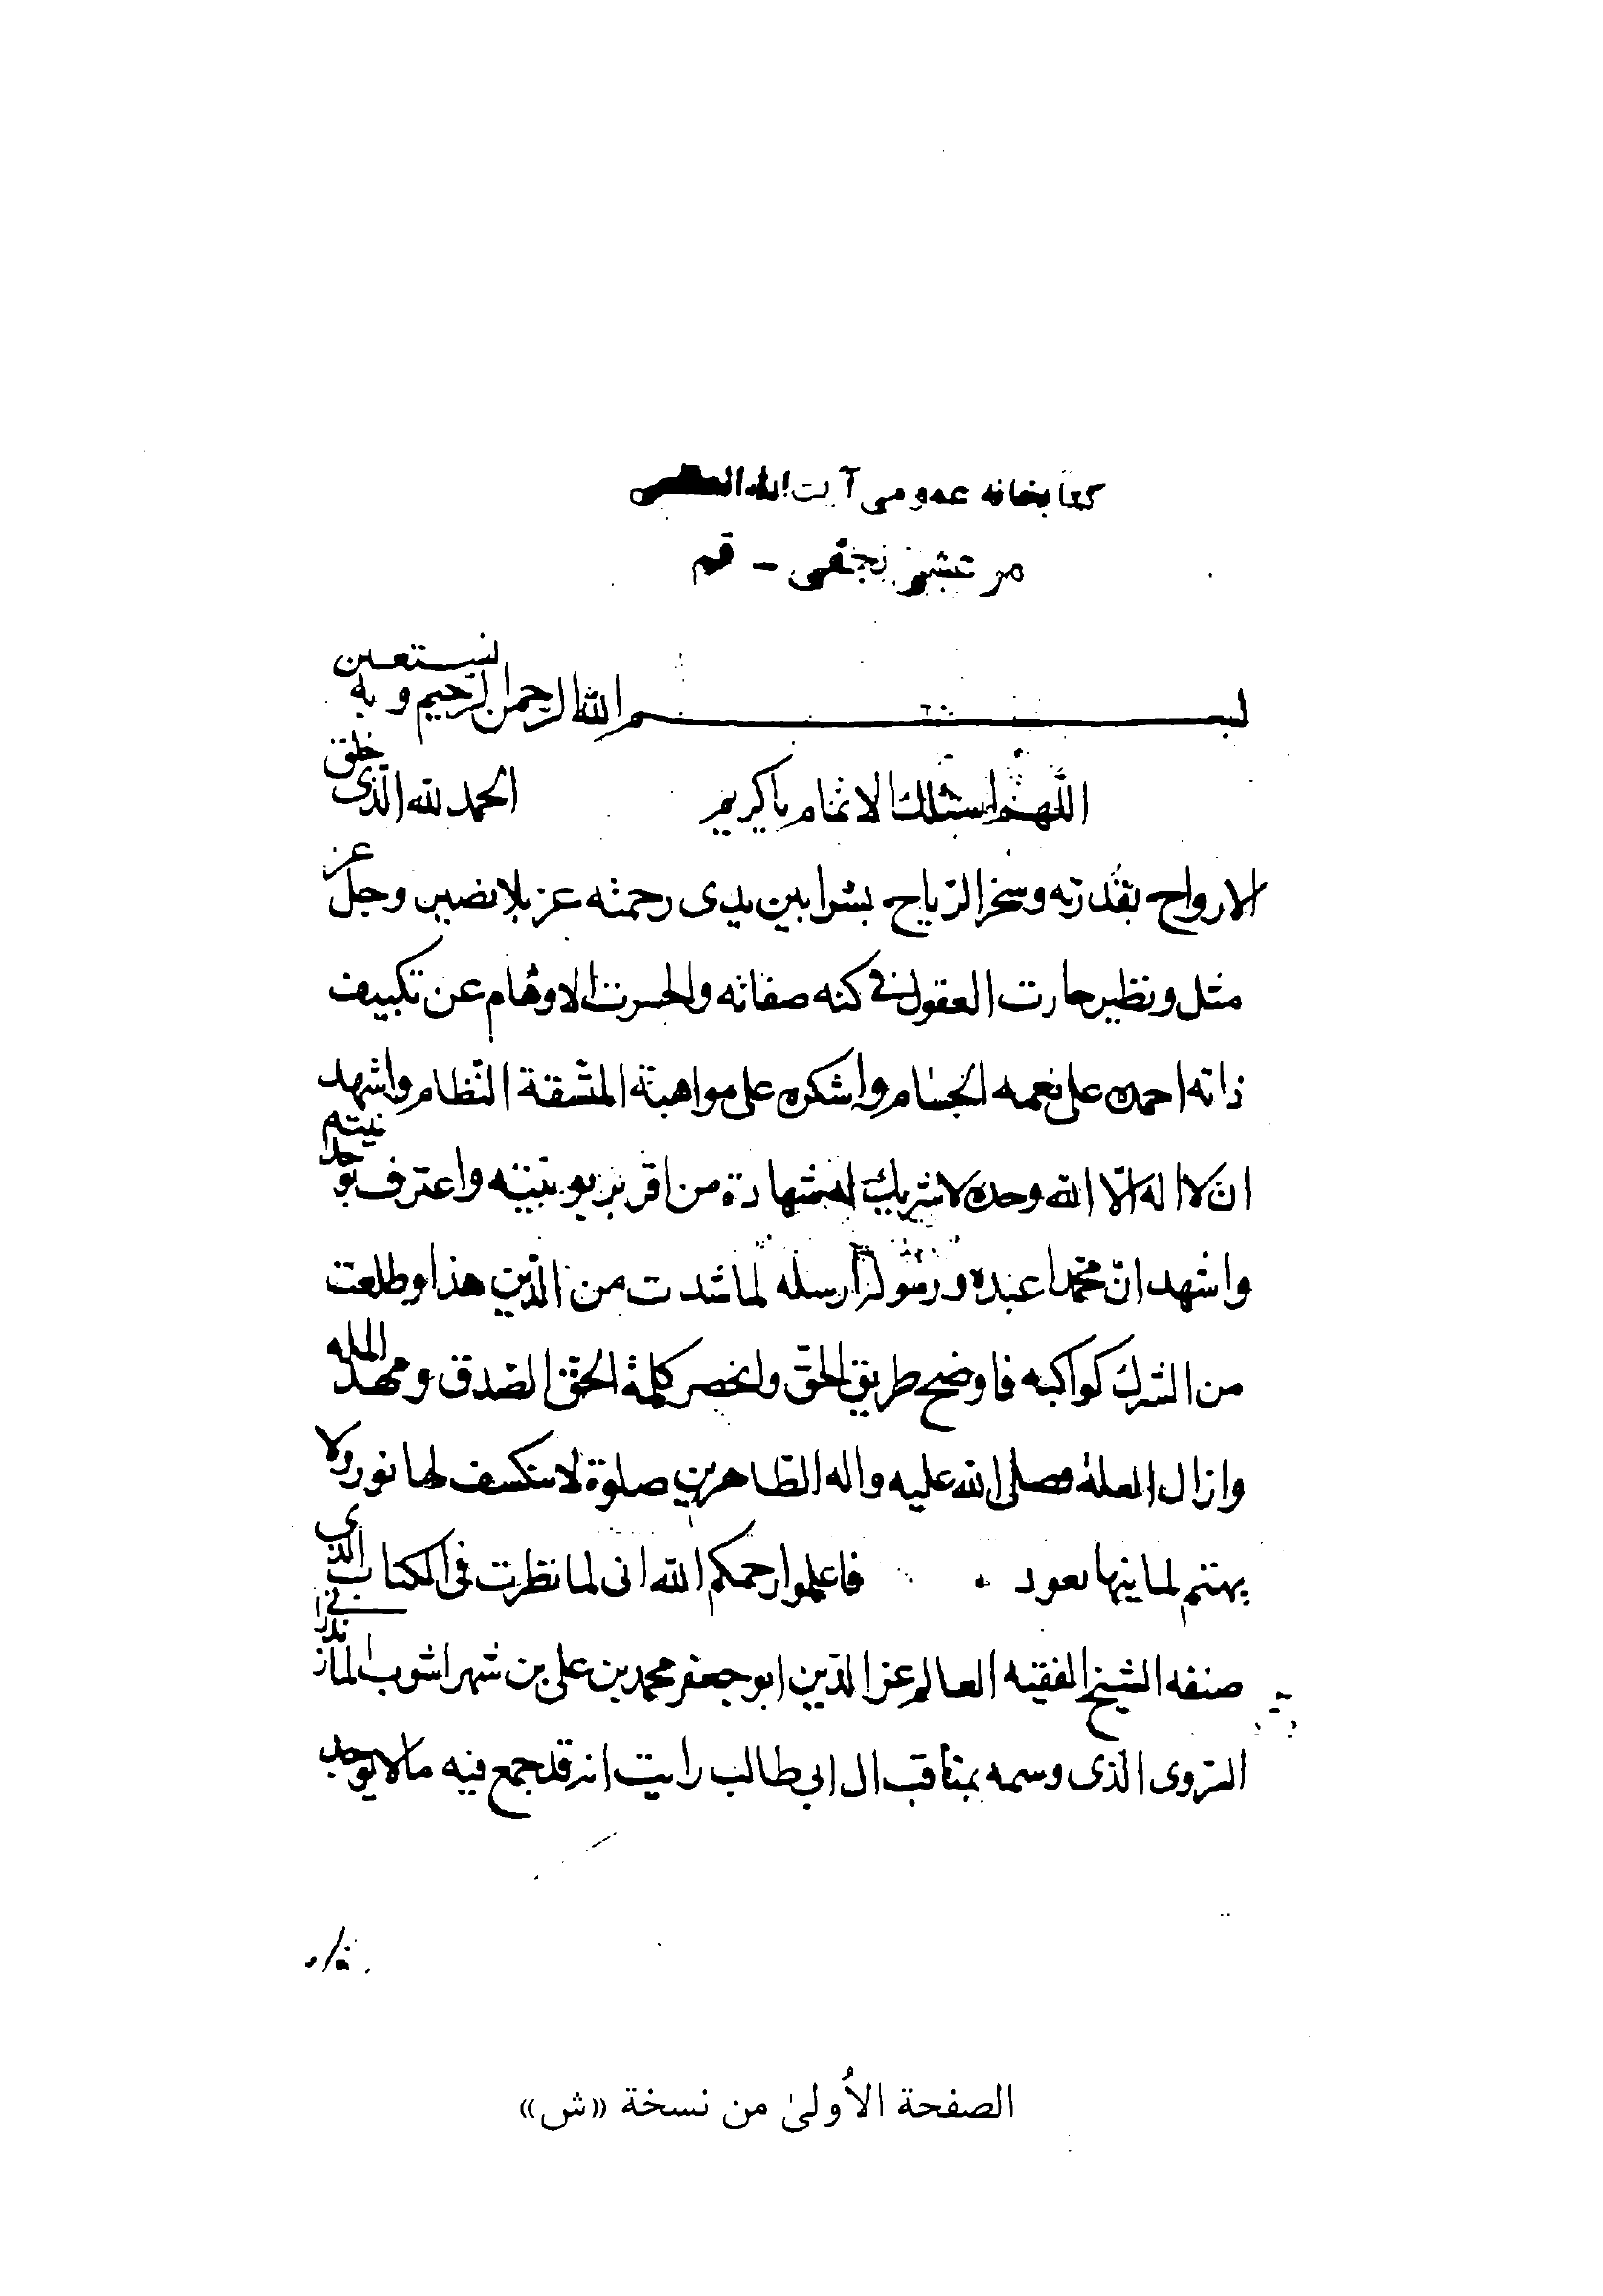 كتابخانه عمومى آيت الله العظمى
مرعشى نجفى - قم
بسم الله الرّحمن الرّحيم و به نستعين
اللّهم اسئلك الاتمام ياكريم الحمد لله الّذى خلق
الارواح بقدرته وسخر الرّياح بشرا بين يدى رحمته عز بلا نضير وجل عن
مثل ونظير حارت العقول فى كنه صفاته وانحسرت الاوهام عن تكييف
ذاته احمده على نعمه الجسام واشكره على مواهبة المتسقة النّظام واشهد
ان لا اله الّا الله وحده لا شريك له شهادة من اقر بربوبيته واعترف بوحدنيته
واشهد انّ محمّدا عبده ورسوله ارسله لما شدت من الدّين هذا وطلعت
من الشرك كواكبه فاوضح طريق الحقّ وانحصر كلمة الحقّ الصّدق ومهد المله
وازال العلة فصلى الله عليه واله الطّاهرين صلوة لا تنكسف لها نور ولا
لما نيها عود فاعلموا رحمكم الله انى لما نظرت فى الكتاب الذى
صنفه الشيخ الفقيه العالم عز الدّين ابو جعفر محمد بن على بن شهراشوب المازندرانى
السّروى الّذى وسمه بمناقب ال ابى طالب رايت انه قد جمع فيه مالا يوجد
الصفحة الأُولىٰ من نسخة «ش»